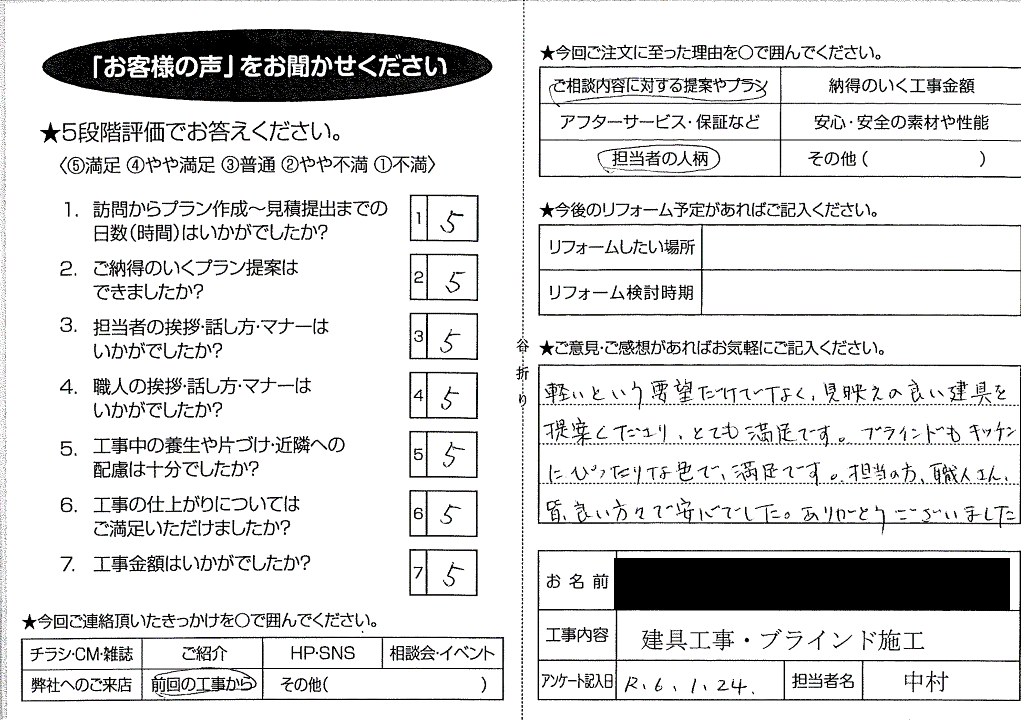 「お客様の声」をお聞かせください
★5段階評価でお答えください。
〈⑤満足 ④やや満足 ③普通 ②やや不満 ①不満〉
1. 訪問からプラン作成〜見積提出までの
日数(時間)はいかがでしたか?
1 5
2. ご納得のいくプラン提案は
できましたか?
2 5
3. 担当者の挨拶・話し方・マナーは
いかがでしたか?
3 5
4. 職人の挨拶・話し方・マナーは
いかがでしたか?
4 5
5. 工事中の養生や片づけ・近隣への
配慮は十分でしたか?
5 5
6. 工事の仕上がりについては
ご満足いただけましたか?
6 5
7. 工事金額はいかがでしたか?
7 5
★今回ご連絡頂いたきっかけを○で囲んでください。
チラシ・CM・雑誌 ご紹介 HP・SNS 相談会・イベント
弊社へのご来店 前回の工事から その他( )
谷折り
★今回ご注文に至った理由を○で囲んでください。
ご相談内容に対する提案やプラン 納得のいく工事金額
アフターサービス・保証など 安心・安全の素材や性能
担当者の人柄 その他( )
★今後のリフォーム予定があればご記入ください。
リフォームしたい場所
リフォーム検討時期
★ご意見・ご感想があればお気軽にご記入ください。
軽いという要望だけでなく、見映えの良い建具を
提案くださり、とても満足です。ブラインドもキッチン
にぴったりな色で、満足です。担当の方、職人さん、
皆、良い方々で安心でした。ありがとうございました
お名前
工事内容 建具工事・ブラインド施工
アンケート記入日 R.6.1.24. 担当者名 中村